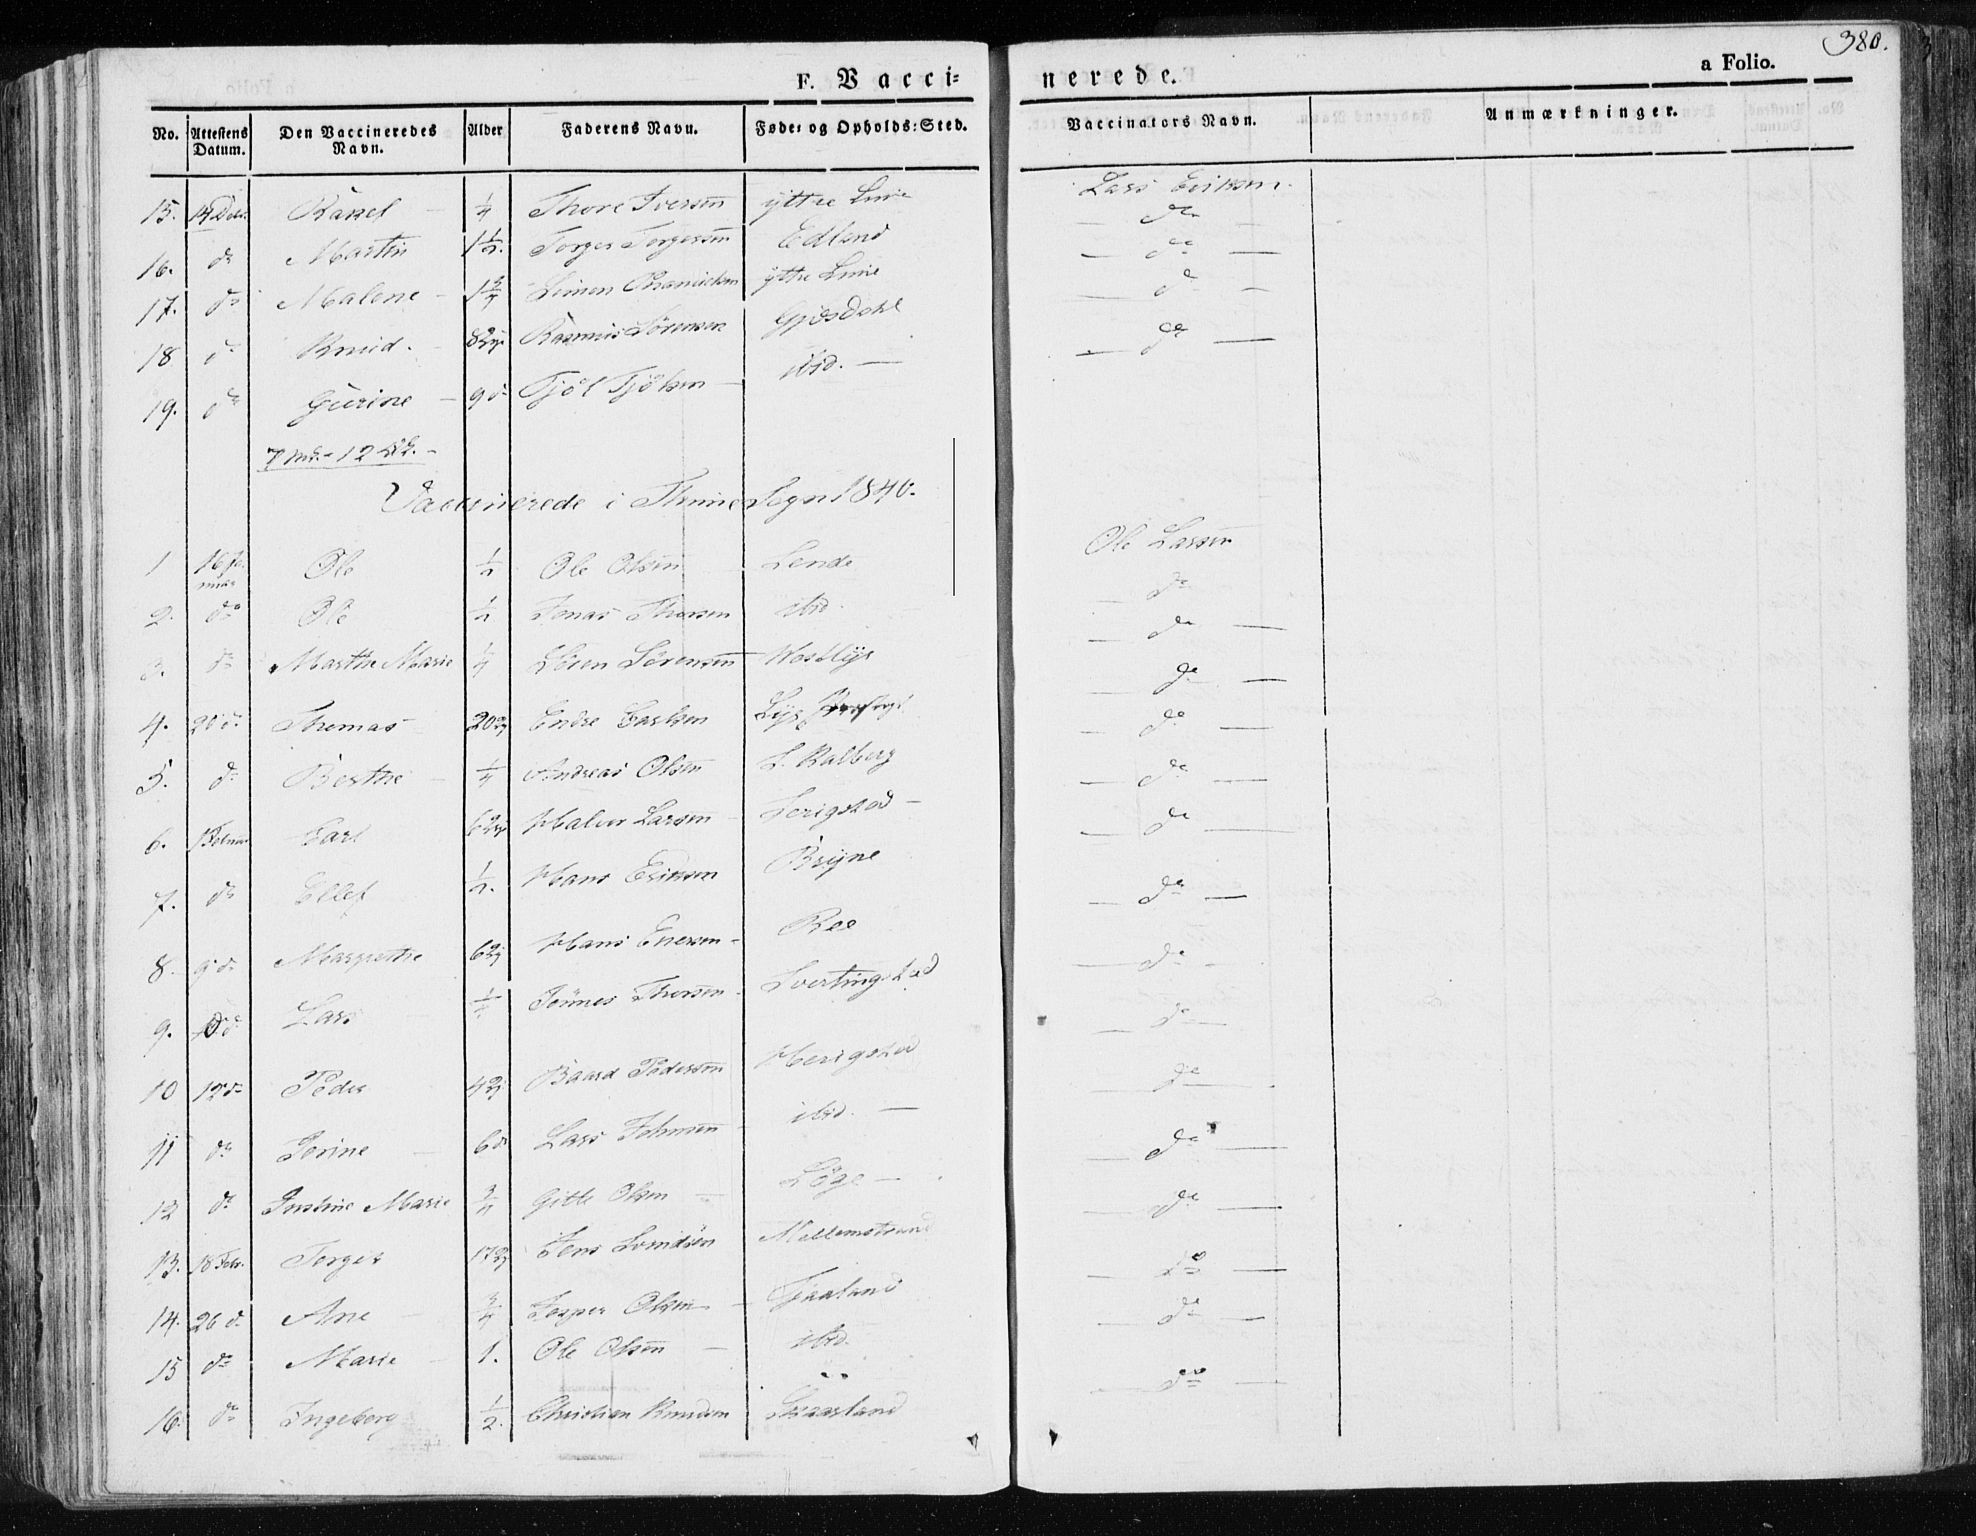 380.
F. Vacci= nerede. a Folio.
No. Attestens Datum. Den Vaccineredes Navn. Alder Faderens Navn. Føde= og Opholds=Sted. Vaccinators Navn. Anmærkninger.
15. Rakel 1/4 Thore Iversen ýttre Lime Lars Eriksen.
16. do Martin 1 1/2. Torger Torgersen Edland — do
17. do Malene 1 3/4 Simen ýttre Lime — do —
18 do Knud. 8 Rasmus Sörensen Gjesdahl — do —
19. do Gurine 9 do Tjöl Tjölsen ibid. — — do —
Vaccinerede i Thime Sogn 1840.
1 16 Ja- nuar Ole 1/2 Ole Olsen Lende Ole Larsen
2. do Ole 1/2 Jonas Thorsen ibid. — do
3. do Marthe Marie 1/4 Sören Sörensen — do —
4. 20 do Thomas 20 Endre — do —
5. do Berthe 1/4 Andreas Olsen L. Kalberg — do —
6. Carl 6 Halvor Larsen Serigstad — — do —
7. do Ellef 1/2. Hans Eriksen Bryne — do —
8. 9 do Margrethe 6 Hans Enersen Ree — do —
9. Lars Tønnes Thorsen Svertingstad — do
10 12 do Peder 4 Baard Pedersen Herigstad — do —
11 do Serine 6 do Lars Johnsen ibid. — — do —
12 do Justine Marie 3/4 Gitle Olsen Löge — — do —
13. 18 Febr. Torger 17 Jens Svendsen Mellemstrand — do —
14. 26 do Ane 3/4 Jesper Olsen Fjaaland — do —
15 do Marie 1. Ole Olsen ibid. — do —
16 do Ingeborg 1/2. Christian Knudsen — do —